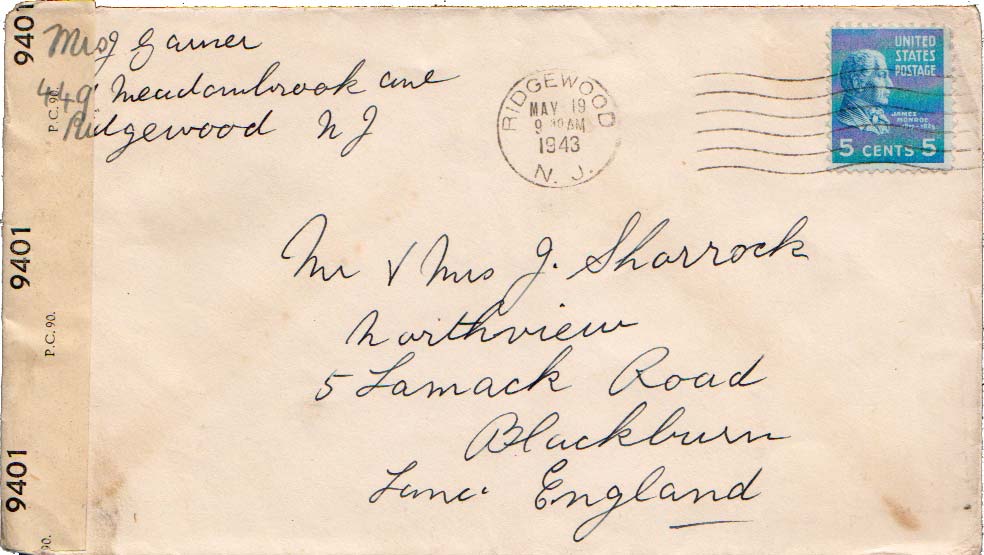 Mrs J Garner
449 Meadowbrook ave
Ridgewood N J
RIDGEWOOD
MAY 19
9 30 AM
1943
N. J.
UNITED
STATES
POSTAGE
JAMES
MONROE
5 CENTS 5
Mr & Mrs J. Sharrock
Northview
5 Lamack Road
Blackburn
Lanc. England
9401
P.C. 90.
9401
P.C. 90.
9401
90.